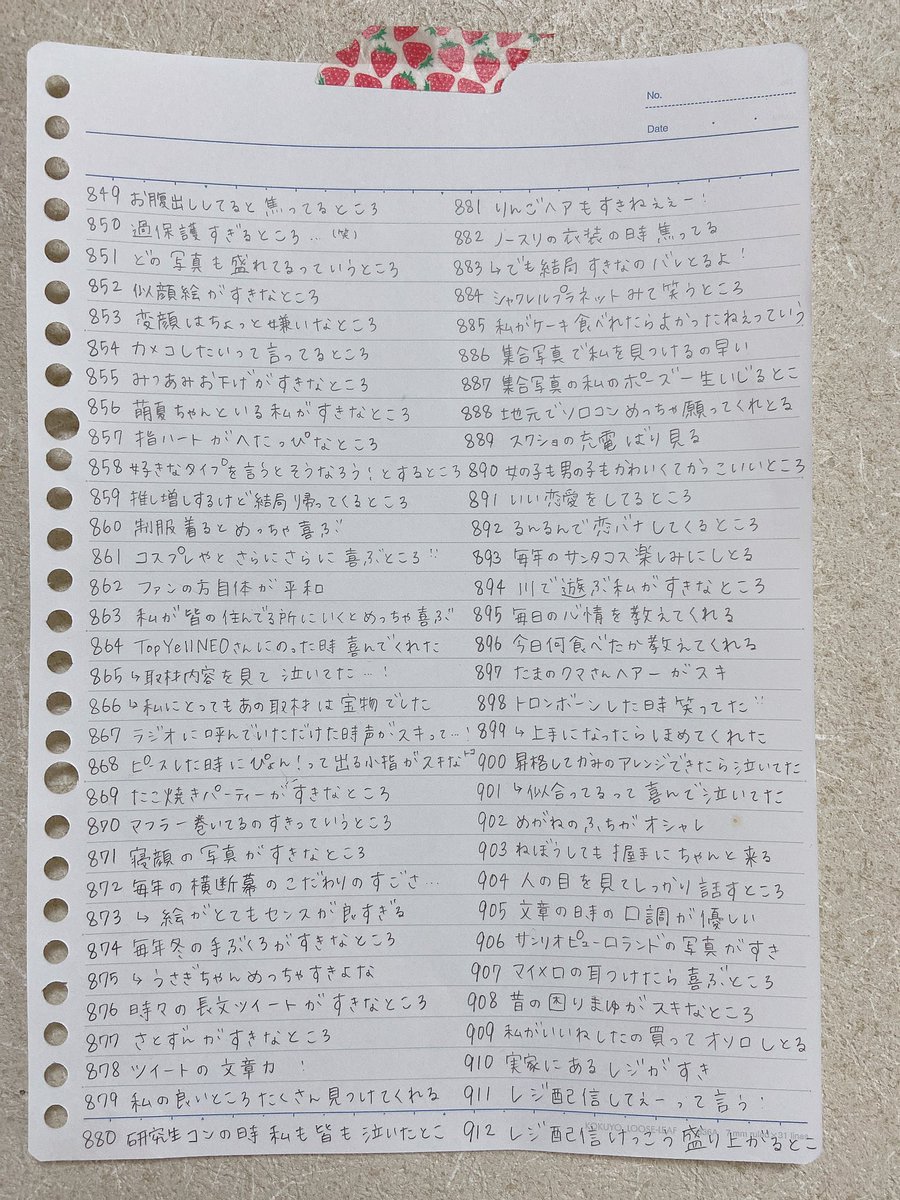 No.
Date
849 お腹出ししてると焦ってるところ
850 過保護すぎるところ…(笑)
851 どの写真も盛れてるっていうところ
852 似顔絵がすきなところ
853 変顔はちょっと嫌いなところ
854 カメコしたいって言ってるところ
855 みつあみお下げがすきなところ
856 萌夏ちゃんといる私がすきなところ
857 指ハートがへたっぴなところ
858 好きなタイプを言うとそうなろう!とするところ
859 推し増しするけど結局帰ってくるところ
860 制服着るとめっちゃ喜ぶ
861 コスプレやとさらにさらに喜ぶところ!!
862 ファンの方自体が平和
863 私が皆の住んでる所にいくとめっちゃ喜ぶ
864 TopYellNEOさんにのった時喜んでくれた
865 ↳取材内容を見て泣いてた…!
866 ↳私にとってもあの取材は宝物でした
867 ラジオに呼んでいただけた時声がスキって…!
868 ピースした時にぴょん!って出る小指がスキなトコ
869 たこ焼きパーティーがすきなところ
870 マフラー巻いてるのすきっていうところ
871 寝顔の写真がすきなところ
872 毎年の横断幕のこだわりのすごさ…
873 ↳絵がとてもセンスが良すぎる
874 毎年冬の手ぶくろがすきなところ
875 ↳うさぎちゃんめっちゃすきよな
876 時々の長文ツイートがすきなところ
877 さとずんがすきなところ
878 ツイートの文章力!
879 私の良いところたくさん見つけてくれる
880 研究生コンの時私も皆も泣いたとこ
881 りんごヘアもすきねぇぇー!
882 ノースリの衣装の時焦ってる
883 ↳でも結局すきなのバレとるよ!
884 シャクレルプラネットみて笑うところ
885 私がケーキ食べれたらよかったねぇっていう
886 集合写真で私を見つけるの早い
887 集合写真の私のポーズ一生いじるとこ
888 地元でソロコンめっちゃ願ってくれとる
889 スクショの充電ばり見る
890 女の子も男の子もかわいくてかっこいいところ
891 いい恋愛をしてるところ
892 るんるんで恋バナしてくるところ
893 毎年のサンタコス楽しみにしとる
894 川で遊ぶ私がすきなところ
895 毎日の心情を教えてくれる
896 今日何食べたか教えてくれる
897 たまのクマさんヘアーがスキ
898 トロンボーンした時笑ってた!!
899 ↳上手になったらほめてくれた
900 昇格してかみのアレンジできたら泣いてた
901 ↳似合ってるって喜んで泣いてた
902 めがねのふちがオシャレ
903 ねぼうしても握手にちゃんと来る
904 人の目を見てしっかり話すところ
905 文章の時の口調が優しい
906 サンリオピューロランドの写真がすき
907 マイメロの耳つけたら喜ぶところ
908 昔の困りまゆがスキなところ
909 私がいいねしたの買ってオソロしとる
910 実家にあるレジがすき
911 レジ配信してぇーって言う!
912 レジ配信けっこう盛り上がるとこ
KOKUYO LOOSE-LEAF